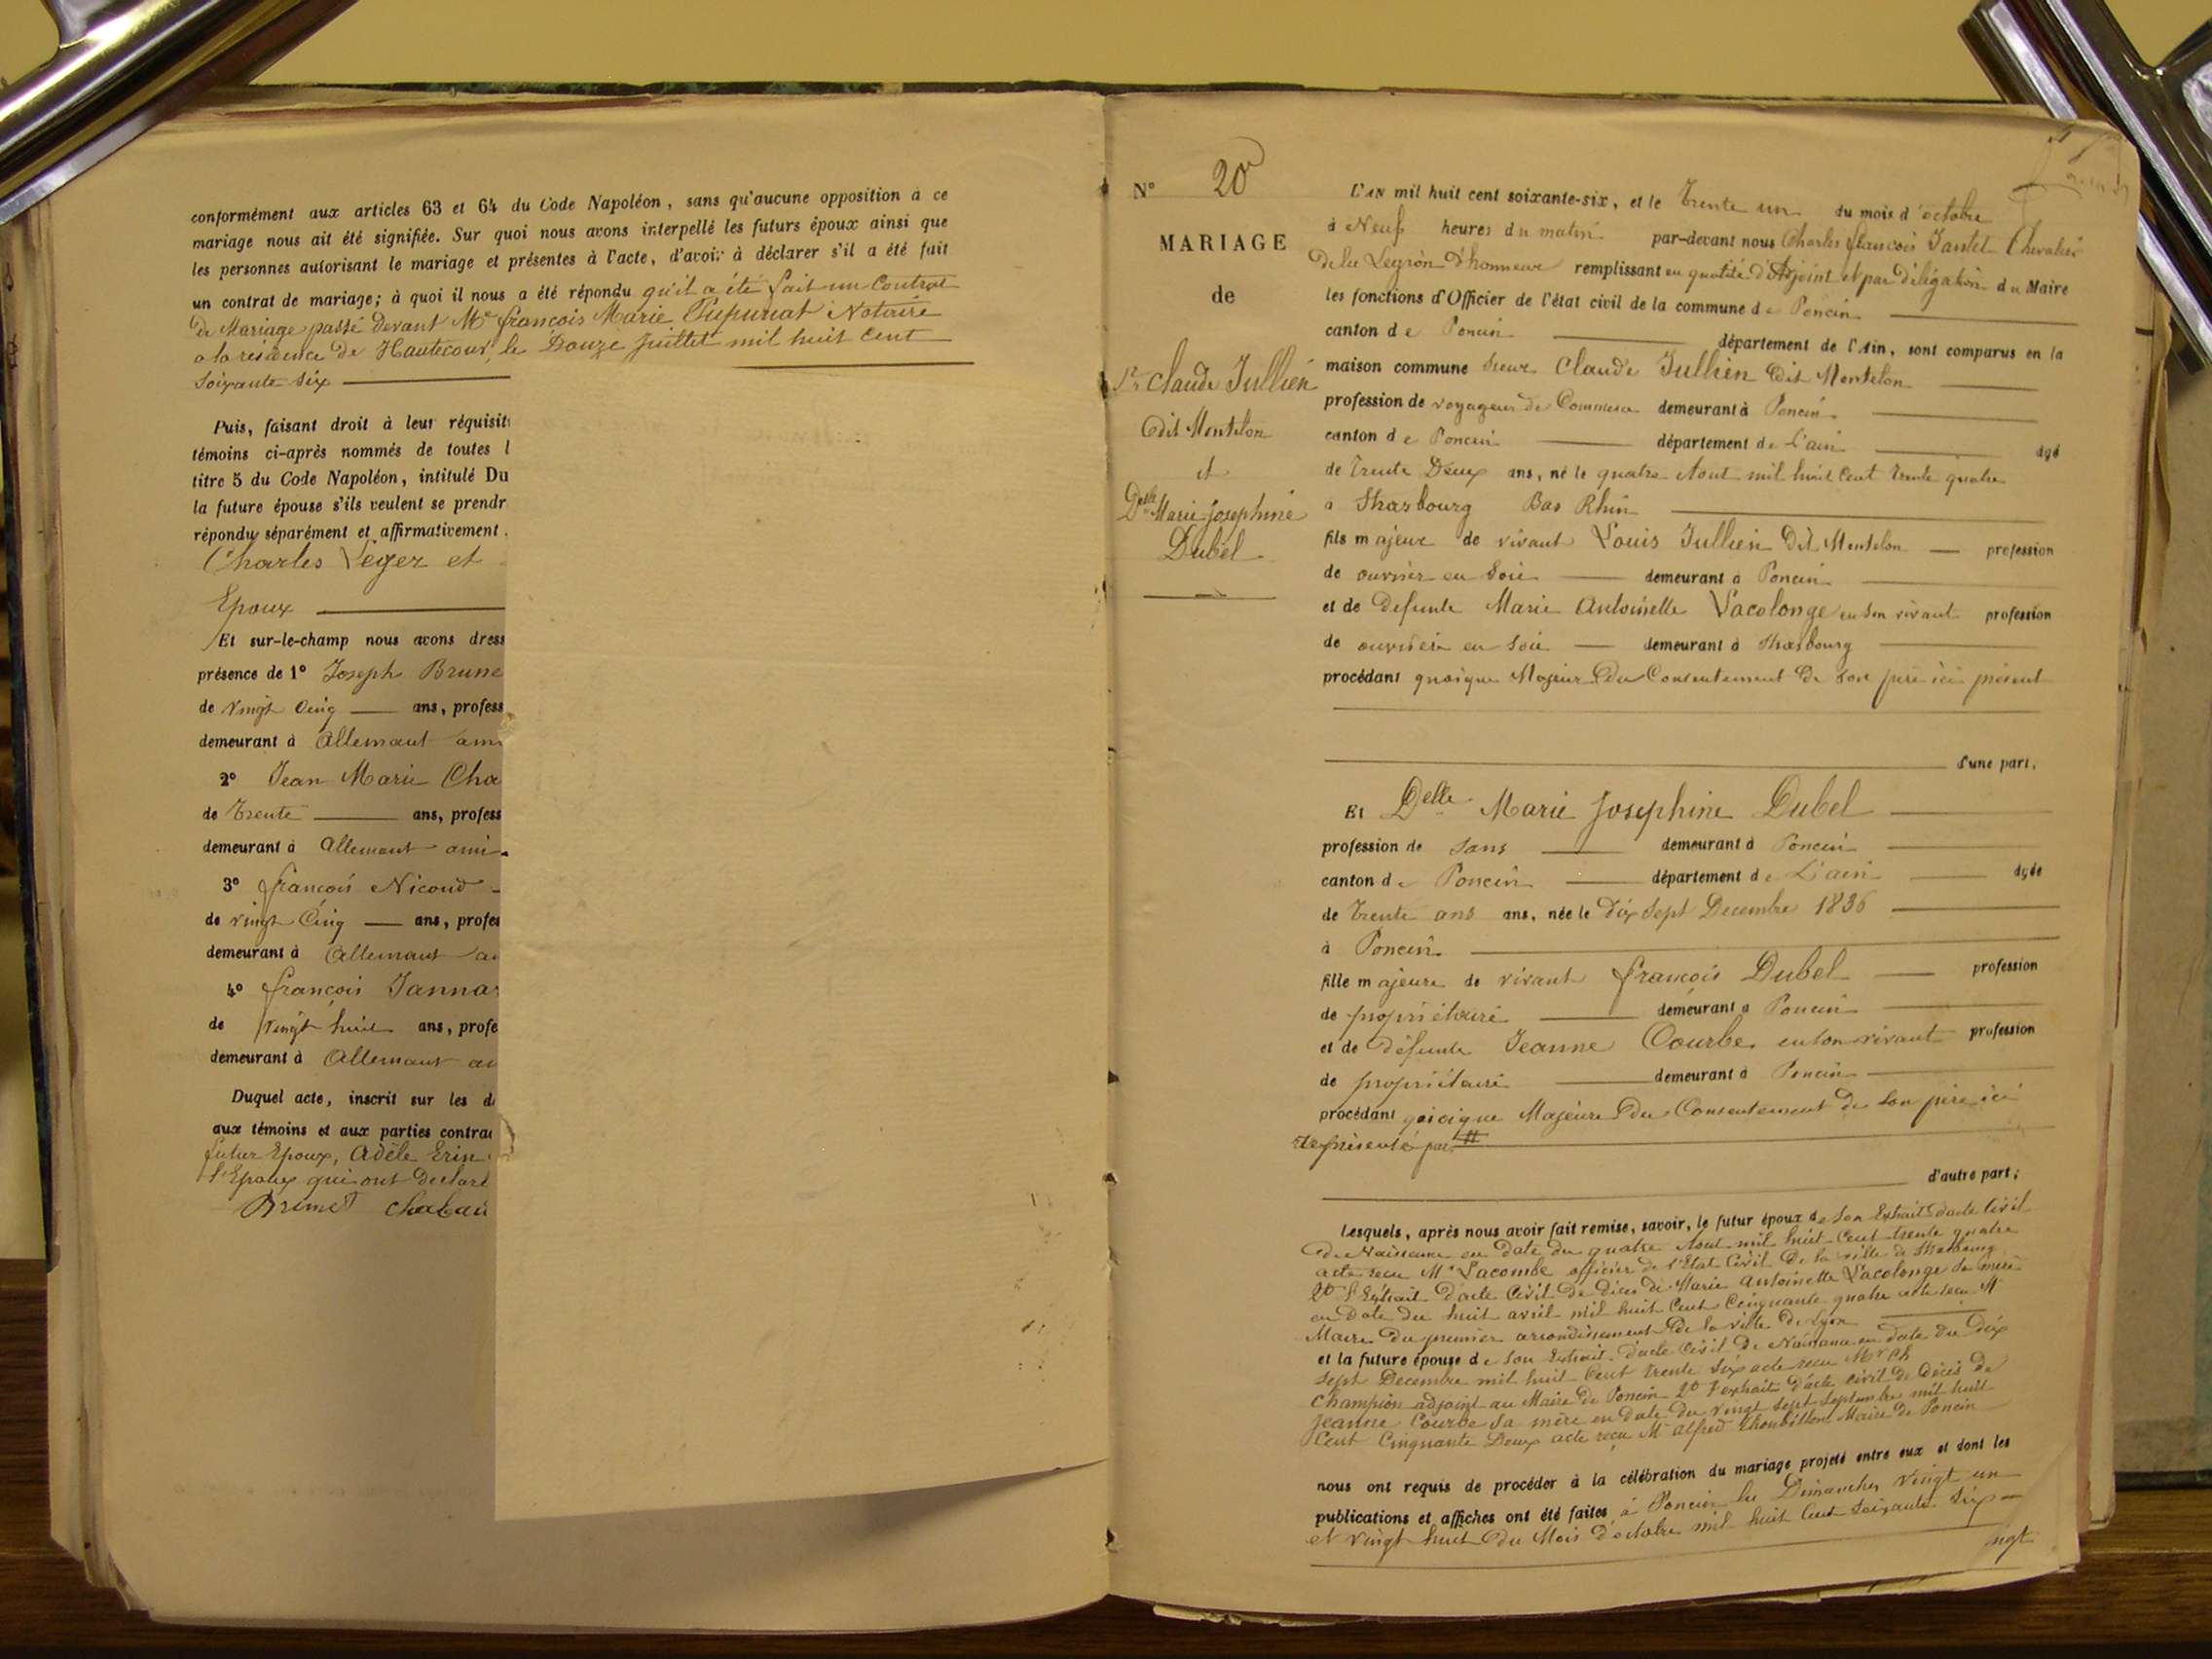 conformément aux articles 63 et 64 du Code Napoléon, sans qu'aucune opposition à ce
mariage nous ait été signifiée. Sur quoi nous avons interpellé les futurs époux ainsi que
les personnes autorisant le mariage et présentes à l'acte, d'avoir à déclarer s'il a été fait
un contrat de mariage; à quoi il nous a été répondu qu'il a été fait un Contrat
de Mariage passé devant Me françois Marie Notaire
a la résidence de Hautecour, le Douze Juillet mil huit cent
soixante six
Puis, faisant droit à leur réquisit
témoins ci-après nommés de toutes l
titre 5 du Code Napoléon, intitulé Du
la future épouse s'ils veulent se prendr
répondu séparément et affirmativement
Charles Léger et
Epoux
Et sur-le-champ nous avons dress
présence de 1° Joseph Brune
de vingt cinq ans, profess
demeurant à Allemant ami
2° Jean Marie Cha
de trente ans, profess
demeurant à Allemant ami
3° françois Nicoud
de vingt Cinq ans, profes
demeurant à Allemant a
4° françois Janna
de vingt huit ans, profe
demeurant à Allemant a
Duquel acte, inscrit sur les d
aux témoins et aux parties contrac
futur Epoux, Adèle Erin
l'Epoux qui ont déclaré
Brunet Chabau
N° 20
MARIAGE
de
Sr Claude Jullien
dit Montelon
et
Delle Marie Josephine
Dubel
L'AN mil huit cent soixante-six, et le trente un du mois d'octobre
à Neuf heures du matin par-devant nous Charles françois Jantet Chevalier
De la Legion d'honneur remplissant en qualité d'Adjoint et par délégation du Maire
les fonctions d'Officier de l'état civil de la commune de Poncin
canton de Poncin département de l'Ain, sont comparus en la
maison commune sieur Claude Jullien dit Montelon
profession de voyageur de Commerce demeurant à Poncin
canton de Poncin département de L'ain âgé
de trente Deux ans, né le quatre Aout mil huit Cent trente quatre
à Strasbourg Bas Rhin
fils majeur de vivant Louis Jullien dit Montelon profession
de ouvrier en Soie demeurant à Poncin
et de defunte Marie Antoinette Vacolonge en son vivant profession
de ouvrière en soie demeurant à Strasbourg
procédant quoique Majeur du Consentement de son père ici présent
d'une part,
Et Delle Marie Josephine Dubel
profession de sans demeurant à Poncin
canton de Poncin département de L'ain âgée
de trente ans ans, née le dix Sept Decembre 1836
à Poncin
fille majeure de vivant françois Dubel profession
de propriétaire demeurant à Poncin
et de défunte Jeanne Courbe en son vivant profession
de propriétaire demeurant à Poncin
procédant quoique Majeure du Consentement de son père ici
représenté par
d'autre part;
Lesquels, après nous avoir fait remise, savoir, le futur époux de son Extrait d'acte Civil
de Naissance en date du quatre Aout mil huit Cent trente quatre
acte recu Mr Lacombe officier de l'Etat Civil De la ville de Strasbourg
2° l'Extrait d'acte Civil De décès de Marie Antoinette Vacolonge sa mère
en Date du huit avril mil huit Cent Cinquante quatre acte recu M
Maire du premier arrondissement De la ville De Lyon
et la future épouse de son Extrait d'acte Civil De Naissance en date du dix
sept Decembre mil huit Cent trente six acte recu Mr Ph
Champion adjoint au Maire de Poncin 2° l'extrait d'acte civil de Décès de
Jeanne Courbe sa mère en Date du vingt sept septembre mil huit
Cent Cinquante Deux acte reçu Mr alfred Maire de Poncin
nous ont requis de procéder à la célébration du mariage projeté entre eux et dont les
publications et affiches ont été faites à Poncin les Dimanches vingt un
et vingt huit du Mois d'octobre mil huit Cent Soixante Six